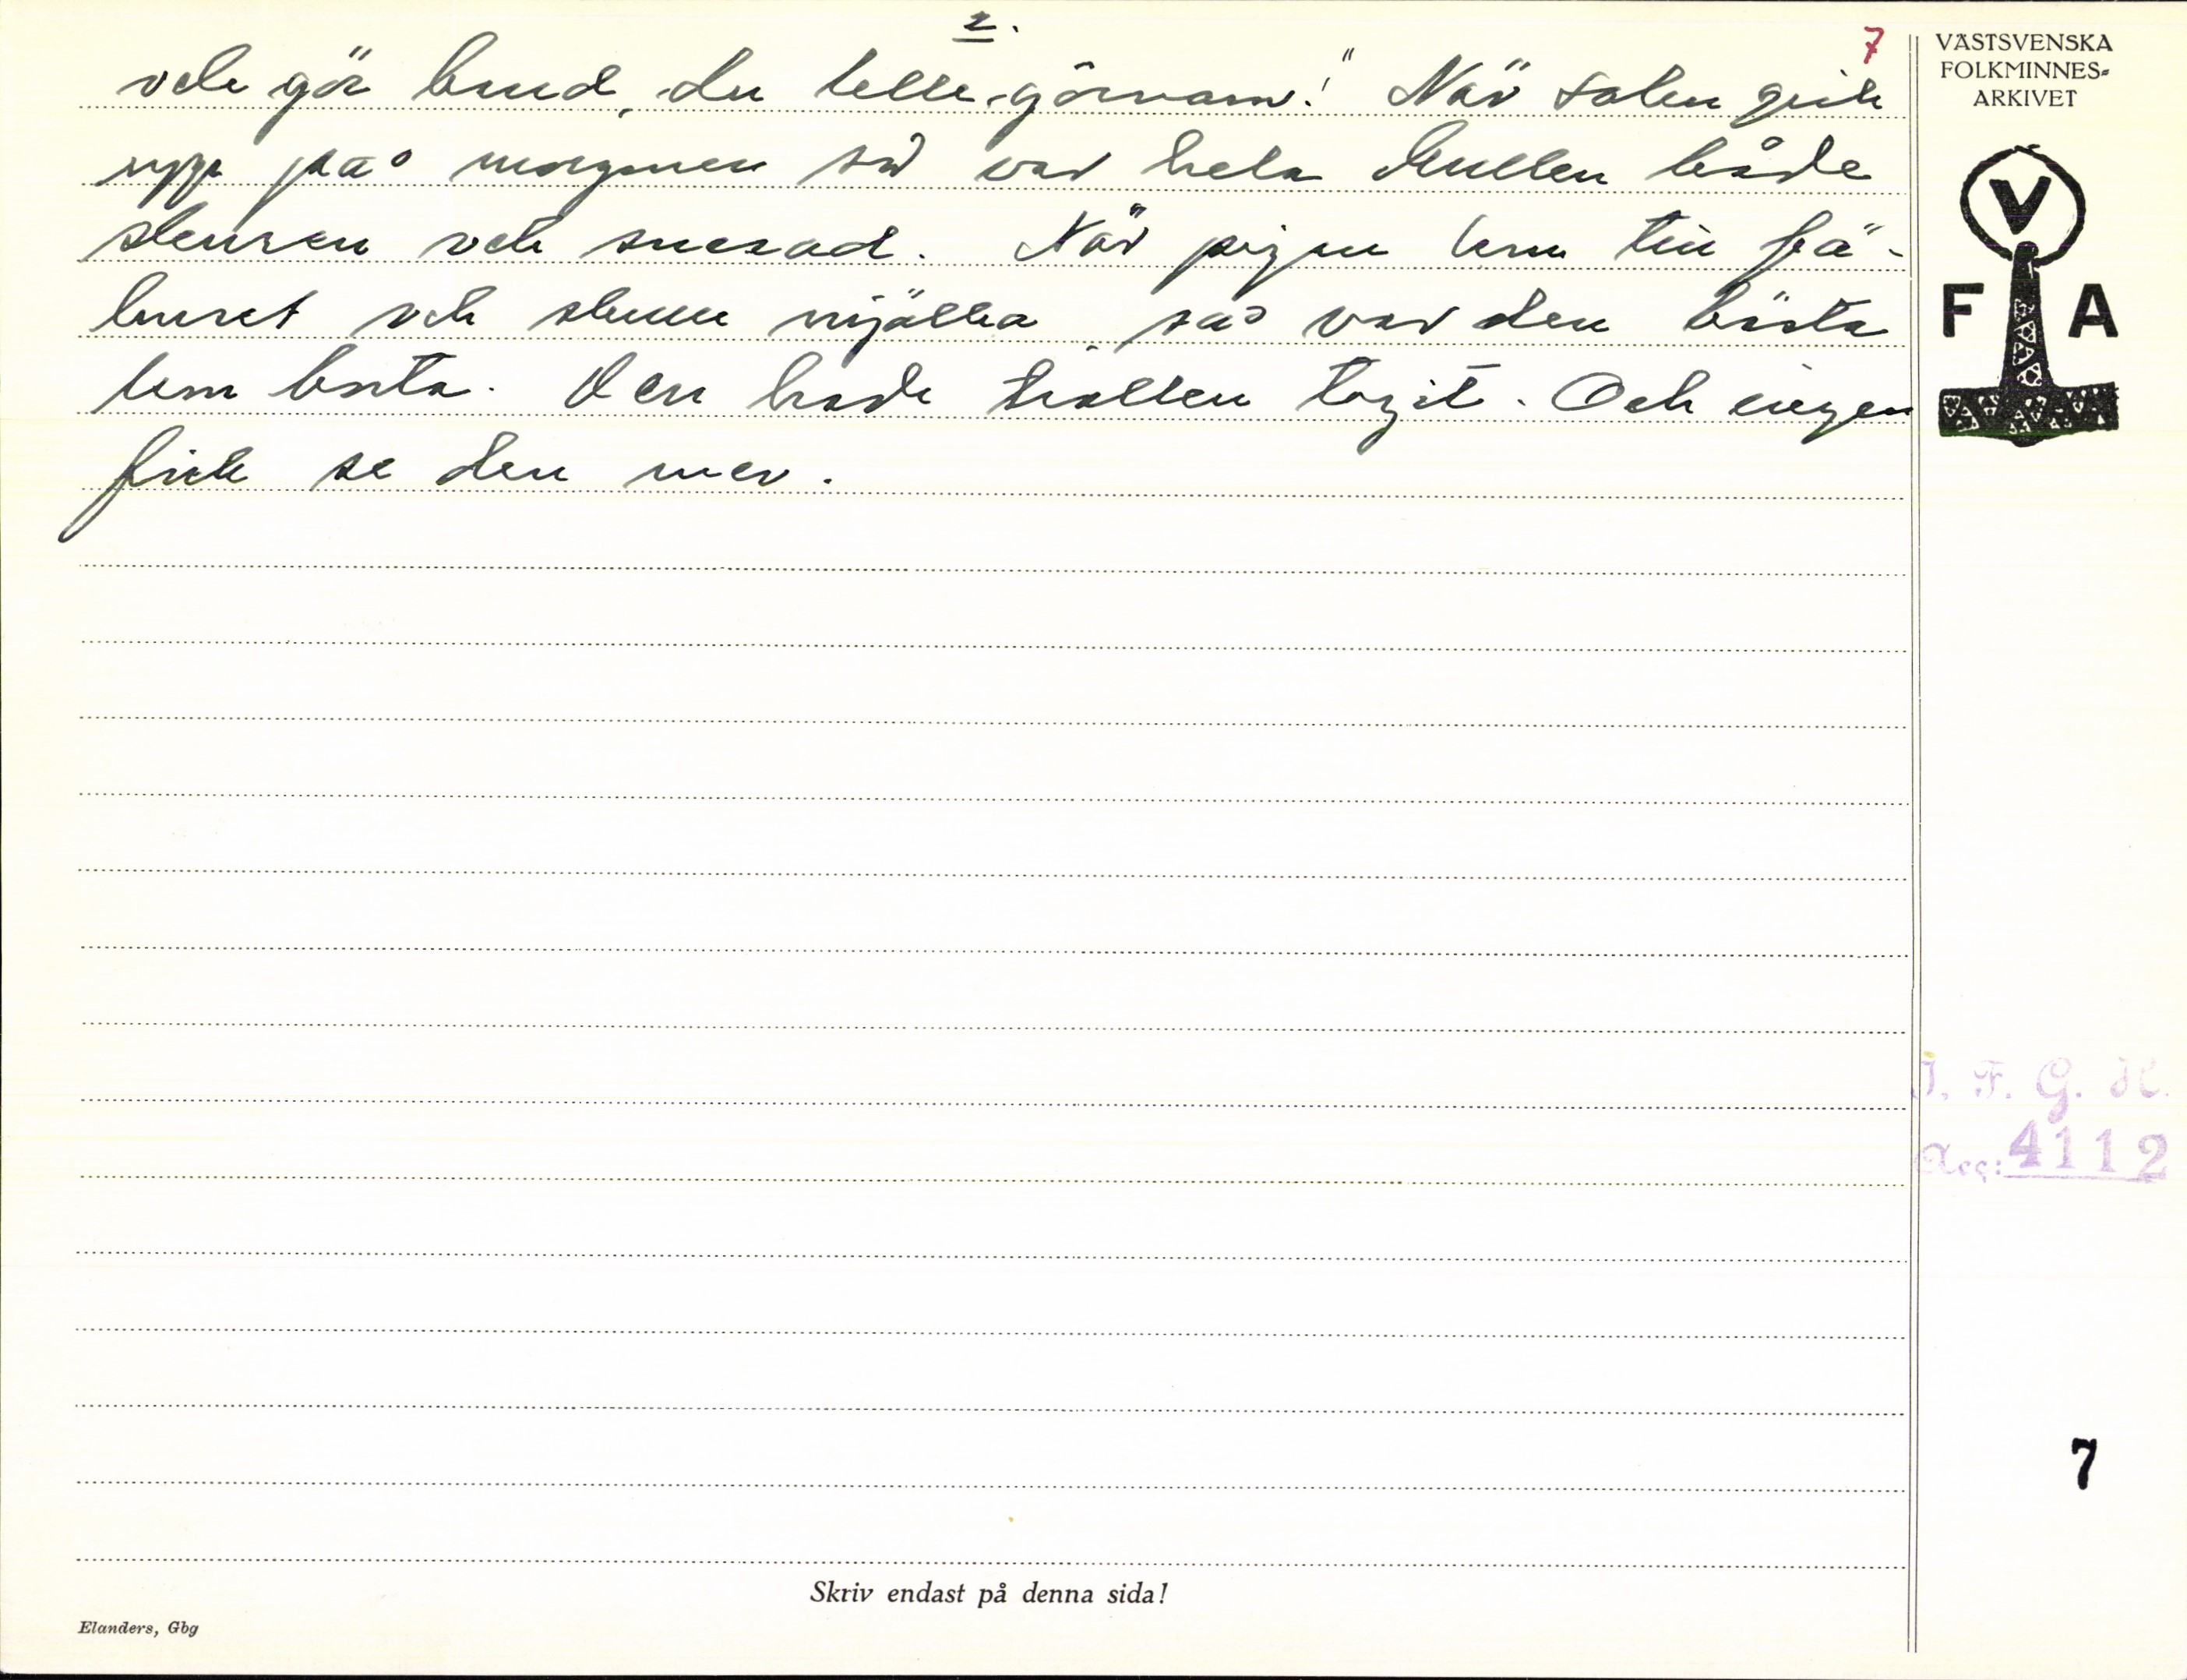 2.
7
och gör bund, du lelle görvam!" När solen gick
upp på morgonen så var hela kullen både
skuren och snesad. När pigan kom till fä-
huset och skulle mjölka så var den bästa
kon borta. Den hade trollen tagit. Och ingen
fick se den mer.
VÄSTSVENSKA
FOLKMINNES-
ARKIVET
V
F A
I. F. G. H.
Acc: 4112
7
Skriv endast på denna sida!
Elanders, Gbg